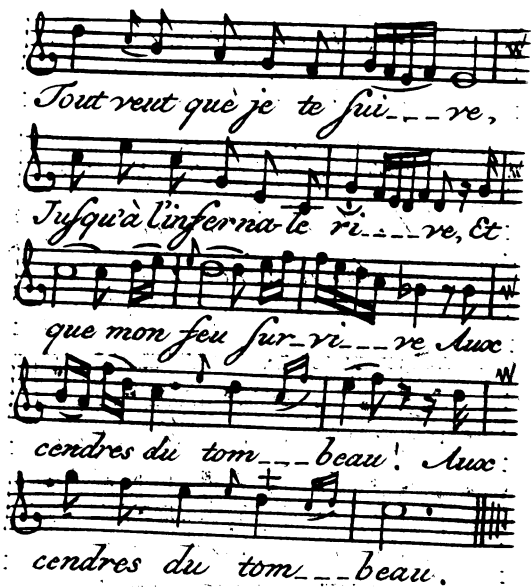 Tout veut que je te sui___ve,
Jusqu'à l'inferna-le ri____ve, Et
que mon feu sur_vi___ve Aux
cendres du tom___beau! Aux
cendres du tom___beau.